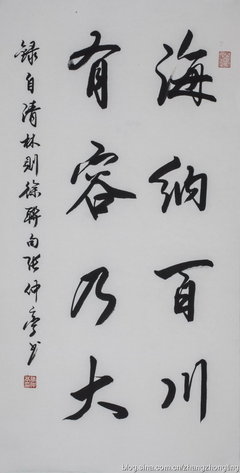 海纳百川
有容乃大
录自清林则徐联句张仲亭书
blog.sina.com.cn/zhangzhongting